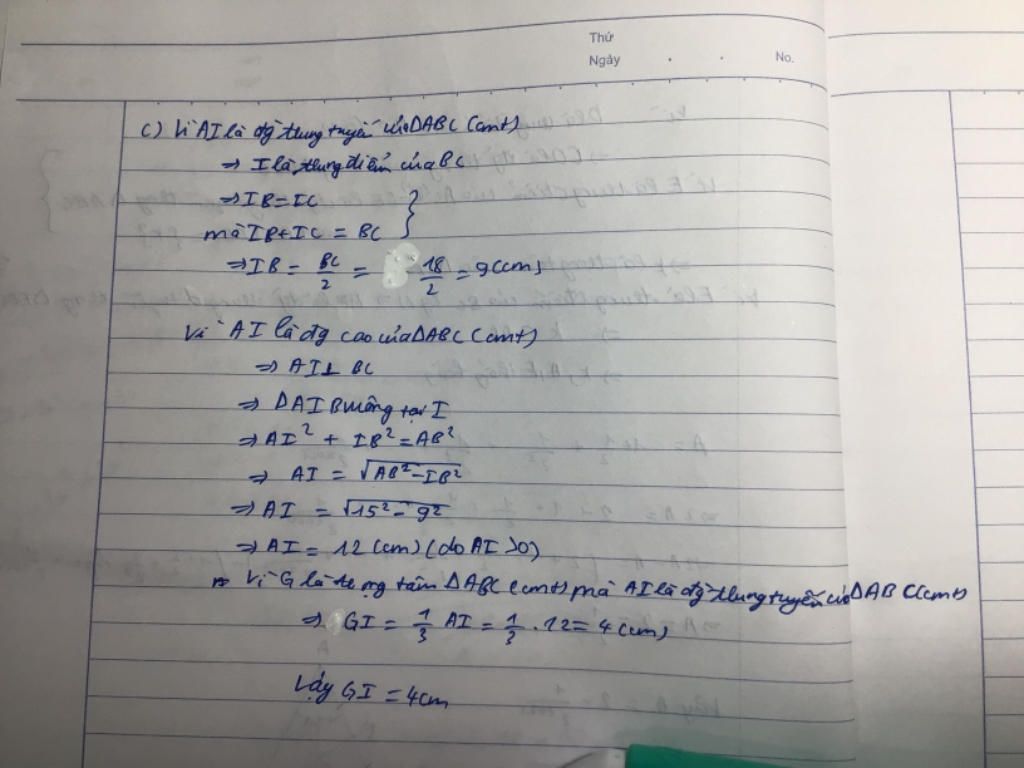 Thứ
Ngày . . No.
c) Vì AI là đg trung tuyến của ΔABC (cmt)
⇒ I là trung điểm của BC
⇒ IB = IC
mà IB + IC = BC }
⇒ IB = BC/2 = 18/2 = 9 (cm)
Vì AI là đg cao của ΔABC (cmt)
⇒ AI ⊥ BC
⇒ ΔAIB vuông tại I
⇒ AI² + IB² = AB²
⇒ AI = √(AB² - IB²)
⇒ AI = √(15² - 9²)
⇒ AI = 12 (cm) (do AI > 0)
Vì G là trọng tâm ΔABC (cmt) mà AI là đg trung tuyến của ΔABC (cmt)
⇒ GI = 1/3 AI = 1/3 . 12 = 4 (cm)
Vậy GI = 4cm